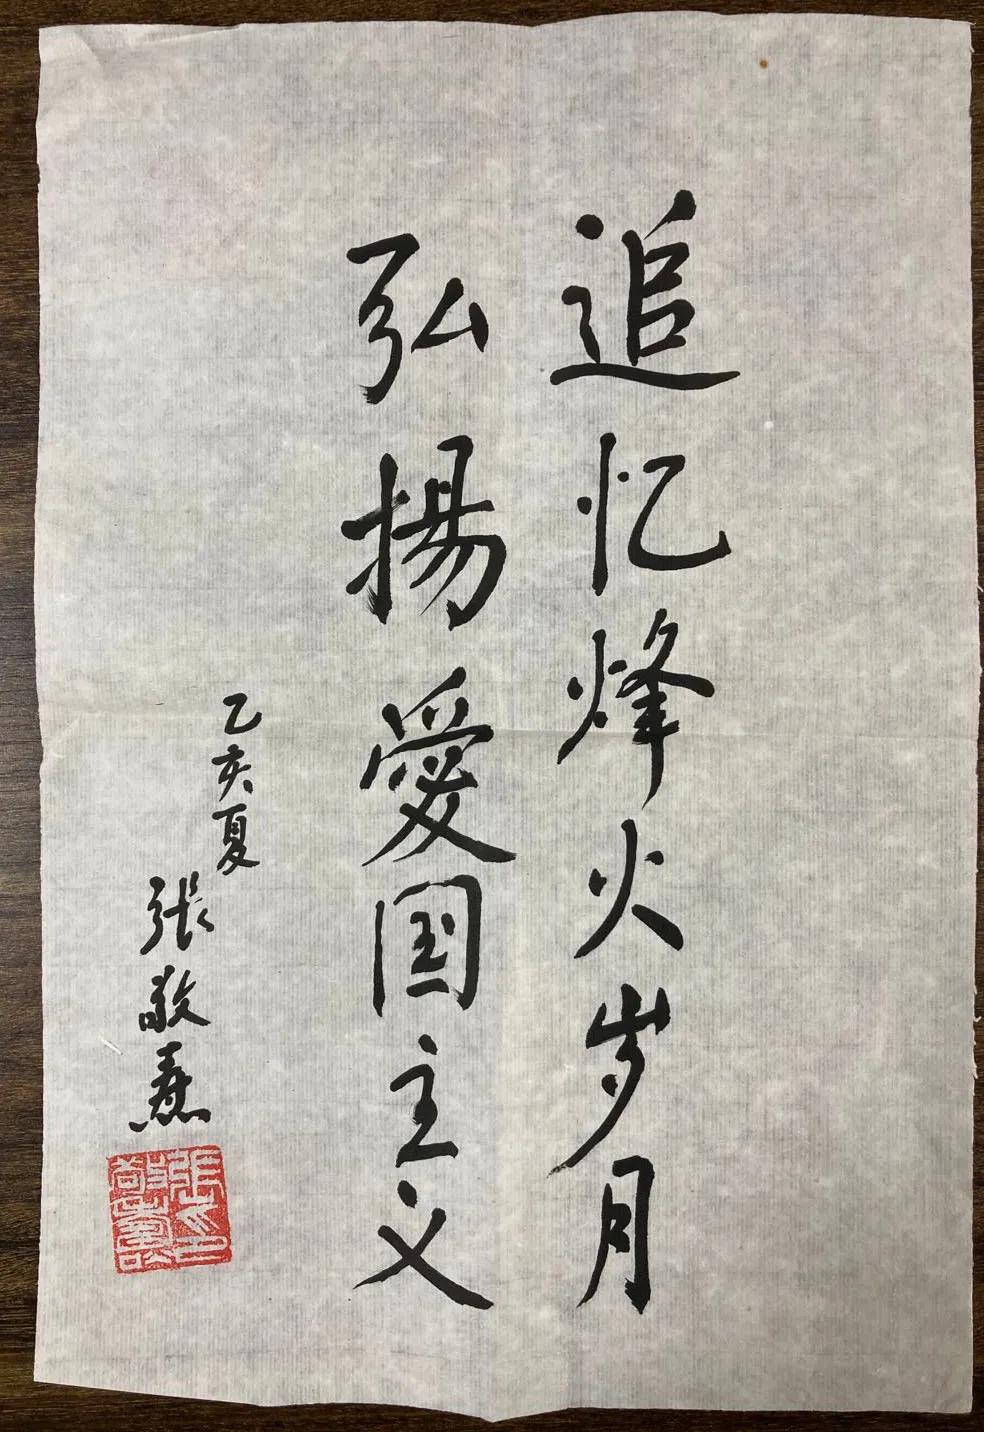 追忆烽火岁月
弘揚愛国主义
乙亥夏
張敬焘